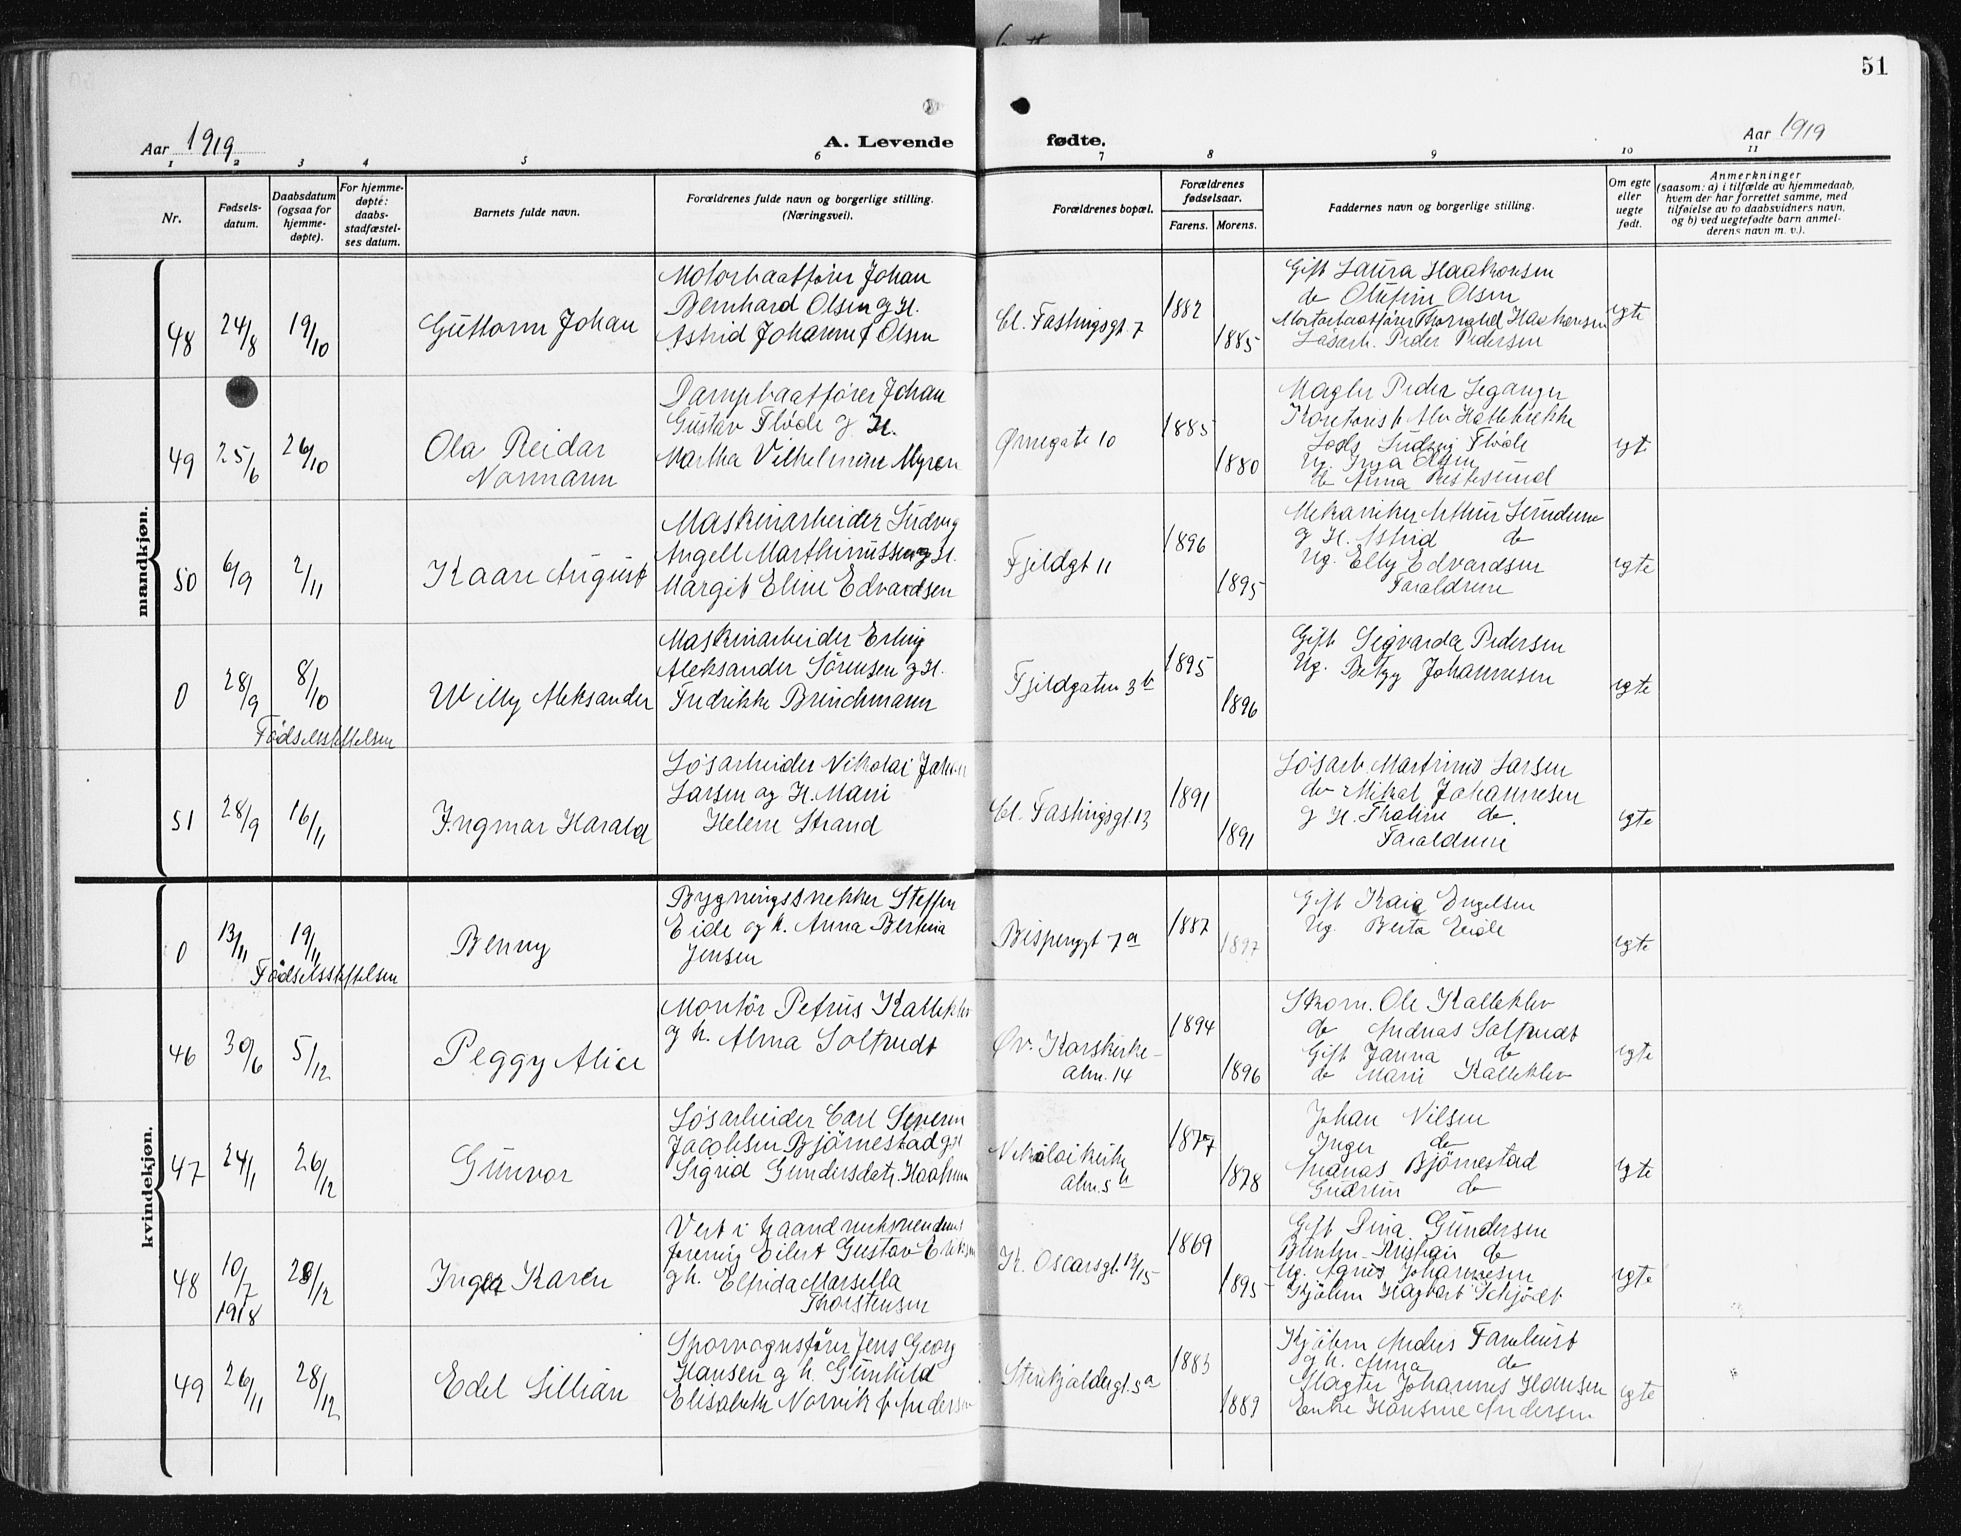 51
Aar 1919
A. Levende fødte.
Aar 1919
1 2 3 4 5 6 7 8 9 10 11
Nr.
Fødsels-
datum.
Daabsdatum
(ogsaa for
hjemme-
døpte).
For hjemme-
døpte:
daabs-
stadfæstel-
ses datum.
Barnets fulde navn.
Forældrenes fulde navn og borgerlige stilling.
(Næringsvei).
Forældrenes bopæl.
Forældrenes
fødselsaar.
Farens. Morens.
Faddernes navn og borgerlige stilling.
Om egte
eller
uegte
født.
Anmerkninger
(saasom: a) i tilfælde av hjemmedaab,
hvem der har forrettet samme, med
tilføielse av to daabsvidners navn,
og b) ved uegtefødte barn anmel-
derens navn m. v.).
mandkjøn.
48 24/8 19/10
Guttorm Johan
Motorbaatfører Johan
Bernhard Olsen og H.
Astrid Johanne f Olsen
Cl. Fastingsgt. 7
1882
1885
Gift Laura Haakonsen
do Olufine Olsen
Mortorbaatfører Thorvald Haakonsen
Løsarb. Peder Pedersen
egte
49 25/6 26/10
Ola Reidar
Normann
Dampbaatfører Johan
Gustav Fløde og H.
Martha Vilhelmine Myren
Ørnegate 10
1885
1880
Mægler Peder Leganger
Kontorist Alv Hallebrekke
Lods Ludvig Fløde
Ug. Inga Olsen
do Anna
egte
50 6/9 2/11
Kaare August
Maskinarbeider Ludvig
Angell Marthinussen og H.
Margit Eline Edvardsen
Fjeldgt 11
1896
1895
Mekaniker Arthur
og H. Astrid do
Ug. Elly Edvardsen
Forældrene
egte
0 28/9 8/10
Fødselsstiftelsen
Willy Aleksander
Maskinarbeider Erling
Aleksander Sørensen og H.
Fredrikke Brinchmann
Fjeldgaten 3b
1895
1896
Gift Sigvarda Pedersen
Ug. Betzy Johannesen
egte
51 28/9 16/11
Ingmar Harald
Løsarbeider Nikolai Johan
Larsen og H. Marie
Helene Strand
Cl. Fastingsgt. 13
1891
1891
Løsarb. Martinus Larsen
do Mikal Johannesen
og H. Thaline do.
Forældrene
egte
kvindekjøn.
0 13/11 19/11
Fødselsstiftelsen
Benny
Bygningssnekker Steffen
Eide og h. Anna Bertina
Jensen
Bispenggt 7a
1887
1897
Gift Kaia Engelsen
Ug. Berta Eide
egte
46 30/6 5/12
Peggy Alice
Montør Petrus Kalleklev
og h. Alma Soltvedt
Øv. Korskirke-
alm. 14
1894
1896
Skom. Ole Kalleklev
do Andreas Soltvedt
Gift Janna do
do Marie Kalleklev
egte
47 24/1 26/12
Gunvor
Løsarbeider Carl Severin
Jacobsen Bjørnestad og H
Sigrid Gundersdatr.
Nikolaikirke
alm. 5b
1877
1878
Johan Nilsen
Inger do
Andreas Bjørnestad
Gudrun do
egte
48 10/7 1918 28/12
Inger Karen
Vert i haandverksvendenes
forening Eilert Gustav
og h. Elfrida Marsella
Thorstensen
K. Oscarsgt. 13/15
1869
1895
Gift Dina Gundersen
Kristian do
Ug. Agnes Johannesen
Kjøbm Hagbart Schjødt
egte
49 26/11 28/12
Edel Lillian
Sporvognsfører Jens Georg
Hansen og h. Gunhild
Elisabeth Norvik f Andersen
Stenkjeldergt. 5a
1883
1889
Kjøbm Anders
og h. Anna do
Slagter Johannes Hansen
Enke Hansine Andersen
egte